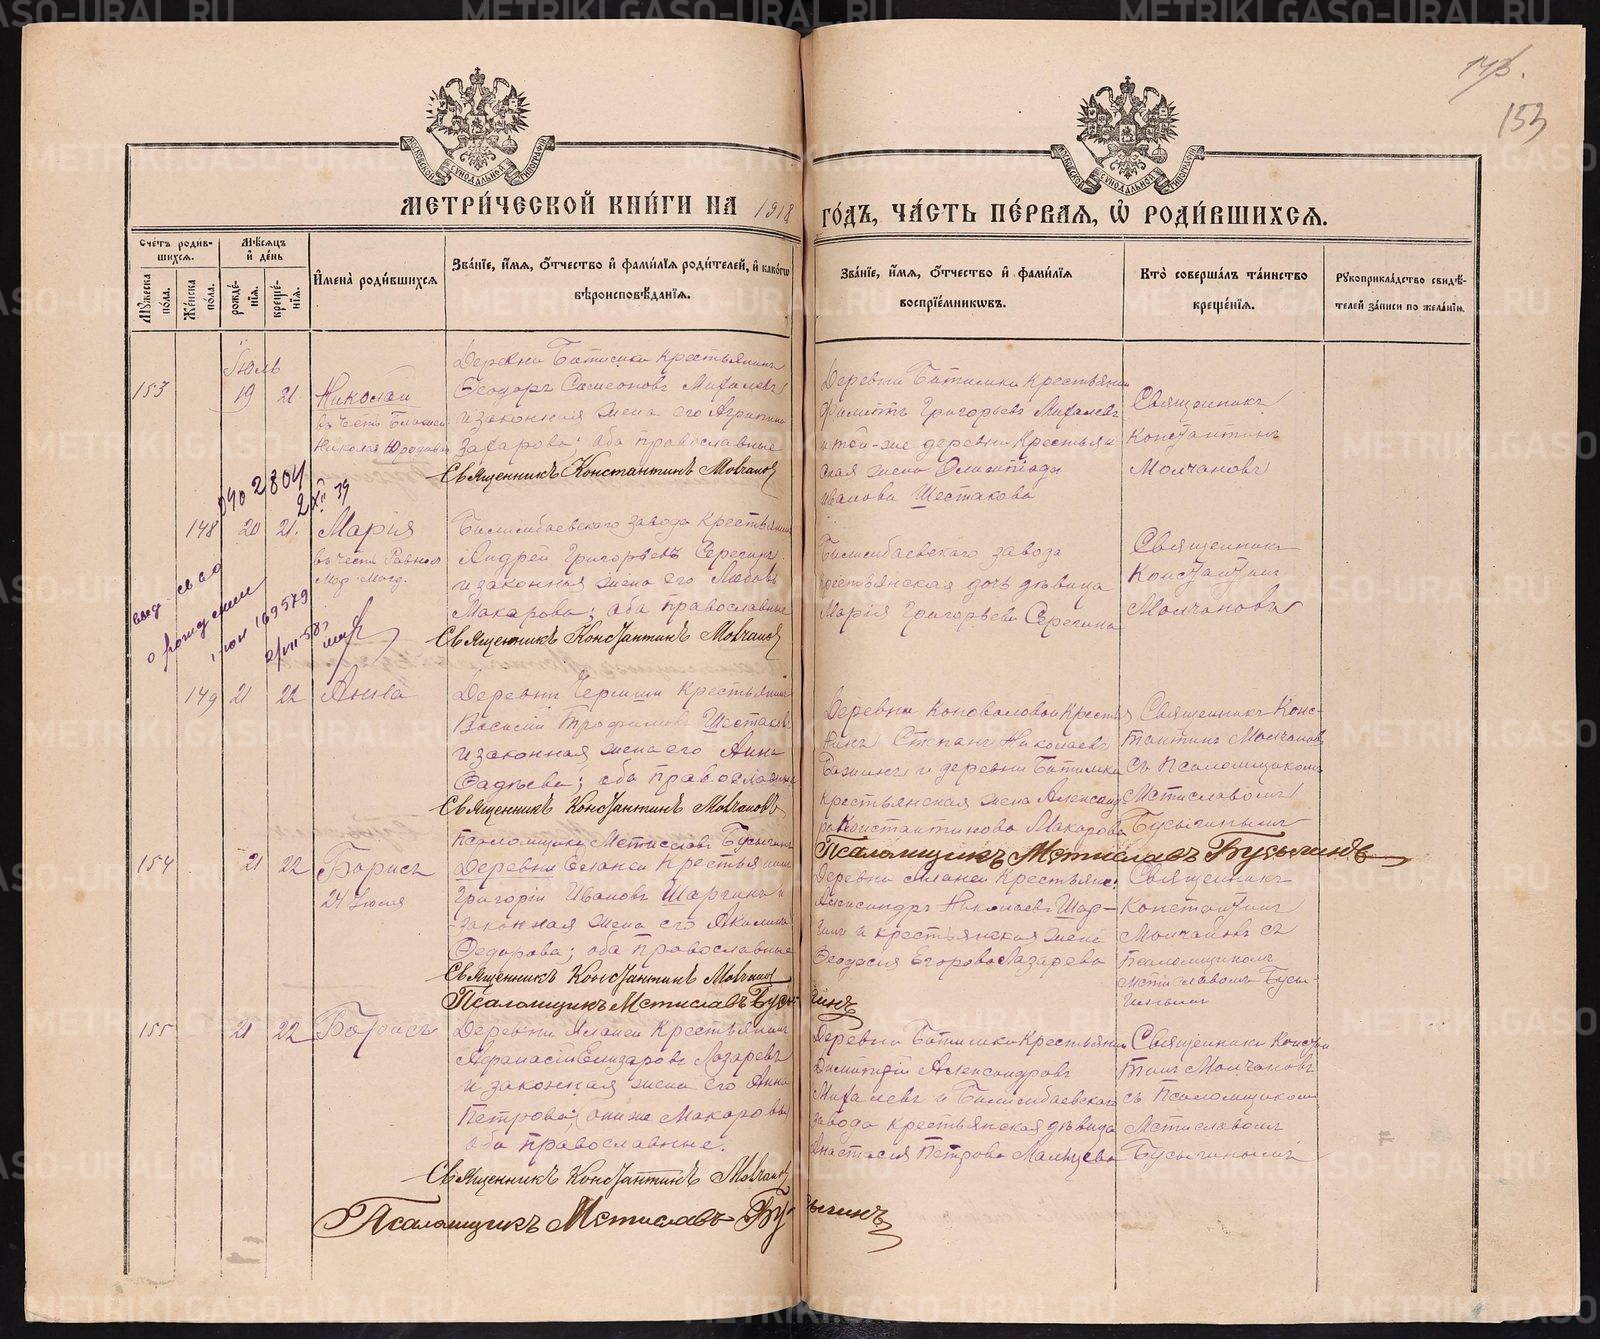 153
МОСКОВСКОЙ СѴНОДАЛЬНОЙ ТИПОГРАФІИ
МОСКОВСКОЙ СѴНОДАЛЬНОЙ ТИПОГРАФІИ
МЕТРИЧЕСКОЙ КНИГИ НА 1918 ГОДЪ, ЧАСТЬ ПЕРВАЯ, Ѡ РОДИВШИХСЯ.
Счетъ родив-
шихся.
Мѣсяцъ
и день
Мужеска
пола.
Женска
пола.
рожде-
нія.
креще-
нія.
Имена родившихся
Званіе, имя, отчество и фамилія родителей, и какогѡ
вѣроисповѣданія.
Званіе, имя, отчество и фамилія
воспріемниковъ.
Кто совершалъ таинство
крещенія.
Рукоприкладство свидѣ-
телей записи по желанію.
Іюль
153 19 21 Николай
въ честь
Николая
Деревни Битимки крестьянинъ
Ѳеодоръ Симеоновъ Михалевъ
и законная жена его Агриппина
Захарова; оба православные
Священникъ Константинъ Молчановъ
Деревни Битимки крестьянинъ
Григорьевъ Михалевъ
и той-же деревни крестьян
ская жена Олимпіада
Иванова Шестакова
Священникъ
Константинъ
Молчановъ
148 20 21. Мария
въ честь Равноап.
Мар. Магд.
Билимбаевскаго завода крестьянинъ
Андрей Григорьевъ Серегинъ
и законная жена его Любовь
Макарова; оба православные
Священникъ Константинъ Молчановъ
Билимбаевскаго завода
крестьянская дочь дѣвица
Марія Григорьева Серегина
Священникъ
Константинъ
Молчановъ
выд. св-во
о рождении
169579
149 21 22 Анна
Деревни крестьянинъ
Василій Трофимовъ Шестаковъ
и законная жена его Анна
Ѳадѣева; оба православные
Священникъ Константинъ Молчановъ
Псаломщикъ Мстиславъ Бусыгинъ
Деревни Коноваловой крестья
нинъ Степанъ Николаевъ
и деревни Битимки
крестьянская жена Александ
ра Константинова Макарова
Псаломщикъ Мстиславъ Бусыгинъ
Священникъ Конс-
тантинъ Молчановъ
съ Псаломщикомъ
Мстиславомъ
Бусыгинымъ
154 21 22 Борисъ
24 Іюля
Деревни Еланей крестьянинъ
Григорій Ивановъ Шаргинъ и
законная жена его Акилина
Ѳедорова; оба православные
Священникъ Константинъ Молчановъ
Псаломщикъ Мстиславъ Бусыгинъ
Деревни крестьянс.
Александръ Николаевъ Шар-
гинъ и крестьянская жена
Ѳеодосія Егорова Лазарева
Священникъ
Константинъ
Молчановъ съ
Псаломщикомъ
Мстиславомъ Бусы-
гинымъ
155 21 22 Борисъ
Деревни крестьянинъ
Аѳанасій Елизаровъ Лазаревъ
и законная жена его Анна
Петрова; она же Макарова
оба православные.
Священникъ Константинъ Молчановъ
Псаломщикъ Мстиславъ Бусыгинъ
Деревни Битимки крестьянинъ
Димитрій Александровъ
Михалевъ и Билимбаевскаго
завода крестьянская дѣвица
Анастасія Петрова Мальцева
Священникъ Констан
тинъ Молчановъ
съ Псаломщикомъ
Мстиславомъ
Бусыгинымъ
METRIKI.GASO-URAL.RU